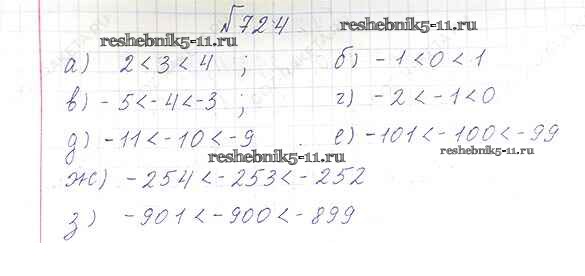 №724
reshebnik5-11.ru reshebnik5-11.ru
а) 2<3<4 ; б) -1<0<1
в) -5<-4<-3 ; г) -2<-1<0
д) -11<-10<-9 е) -101<-100<-99
reshebnik5-11.ru reshebnik5-11.ru
ж) -254<-253<-252
з) -901<-900<-899